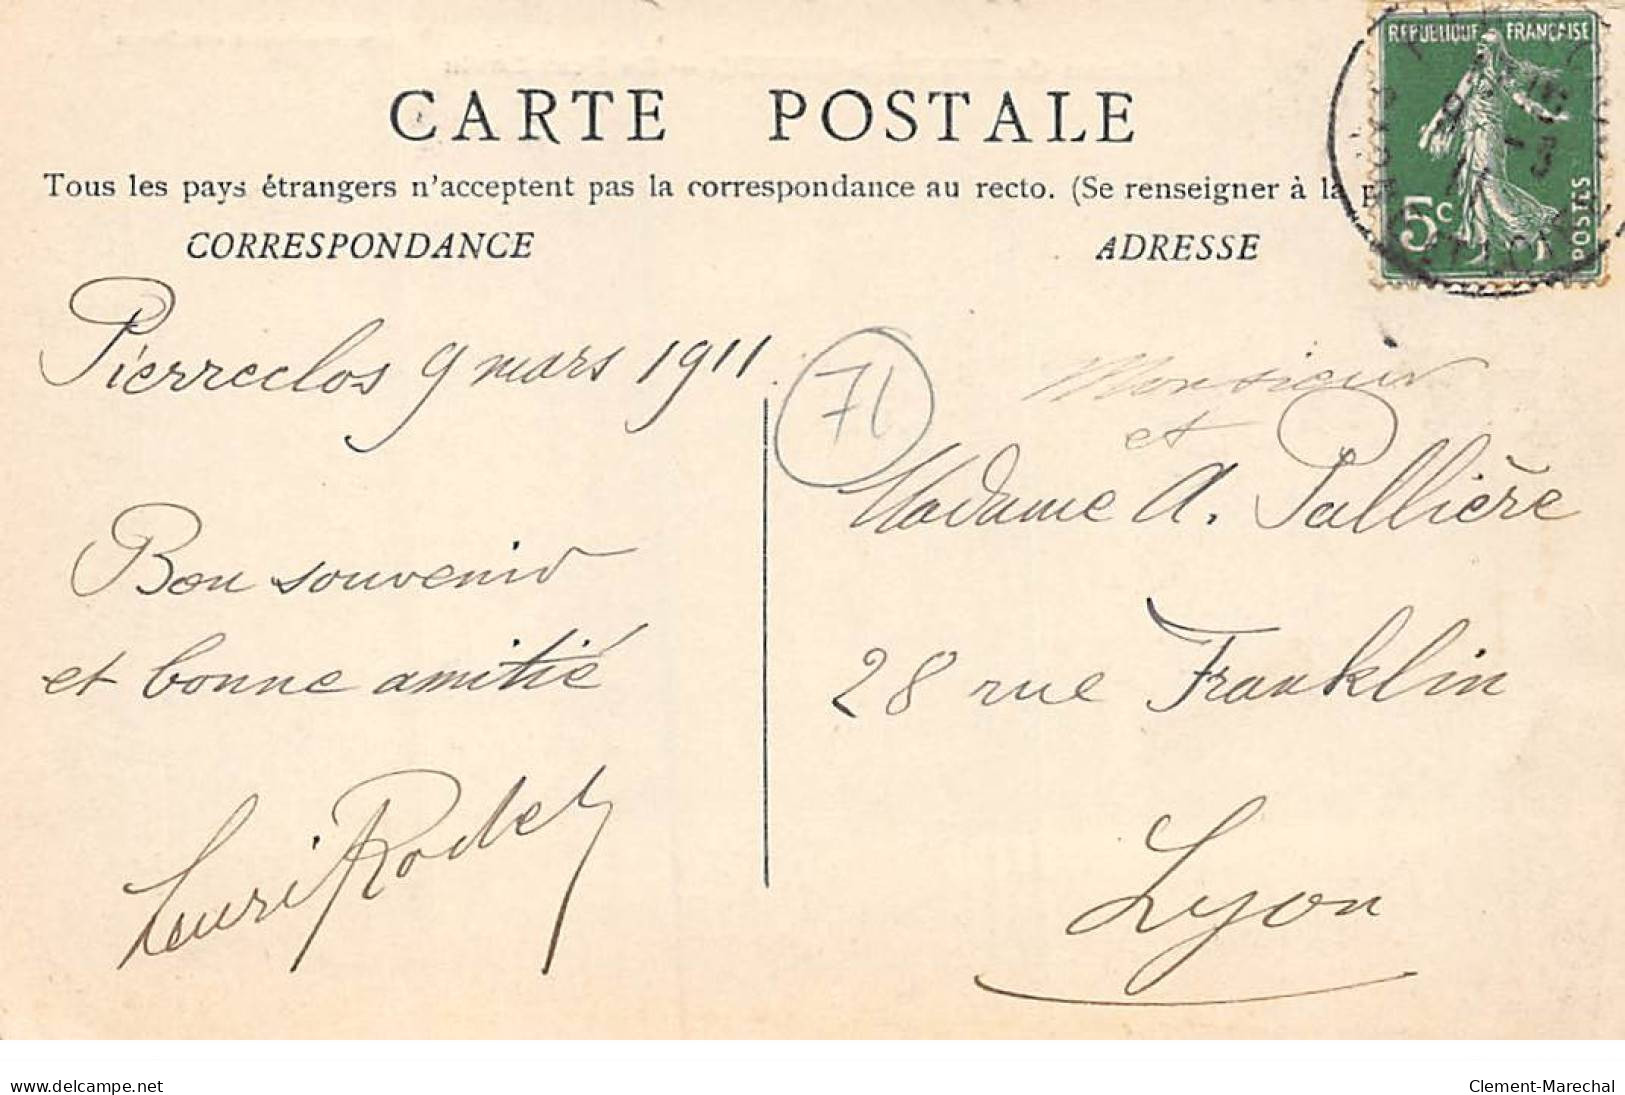 REPUBLIQUE FRANÇAISE
5c
POSTES
CARTE POSTALE
Tous les pays étrangers n'acceptent pas la correspondance au recto. (Se renseigner à la p
CORRESPONDANCE
Pierreclos 9 mars 1911
Bon souvenir
et bonne amitié
Henri Rodet
71
ADRESSE
Monsieur
et
Madame A. Pallière
28 rue Franklin
Lyon
www.delcampe.net
Clement-Marechal